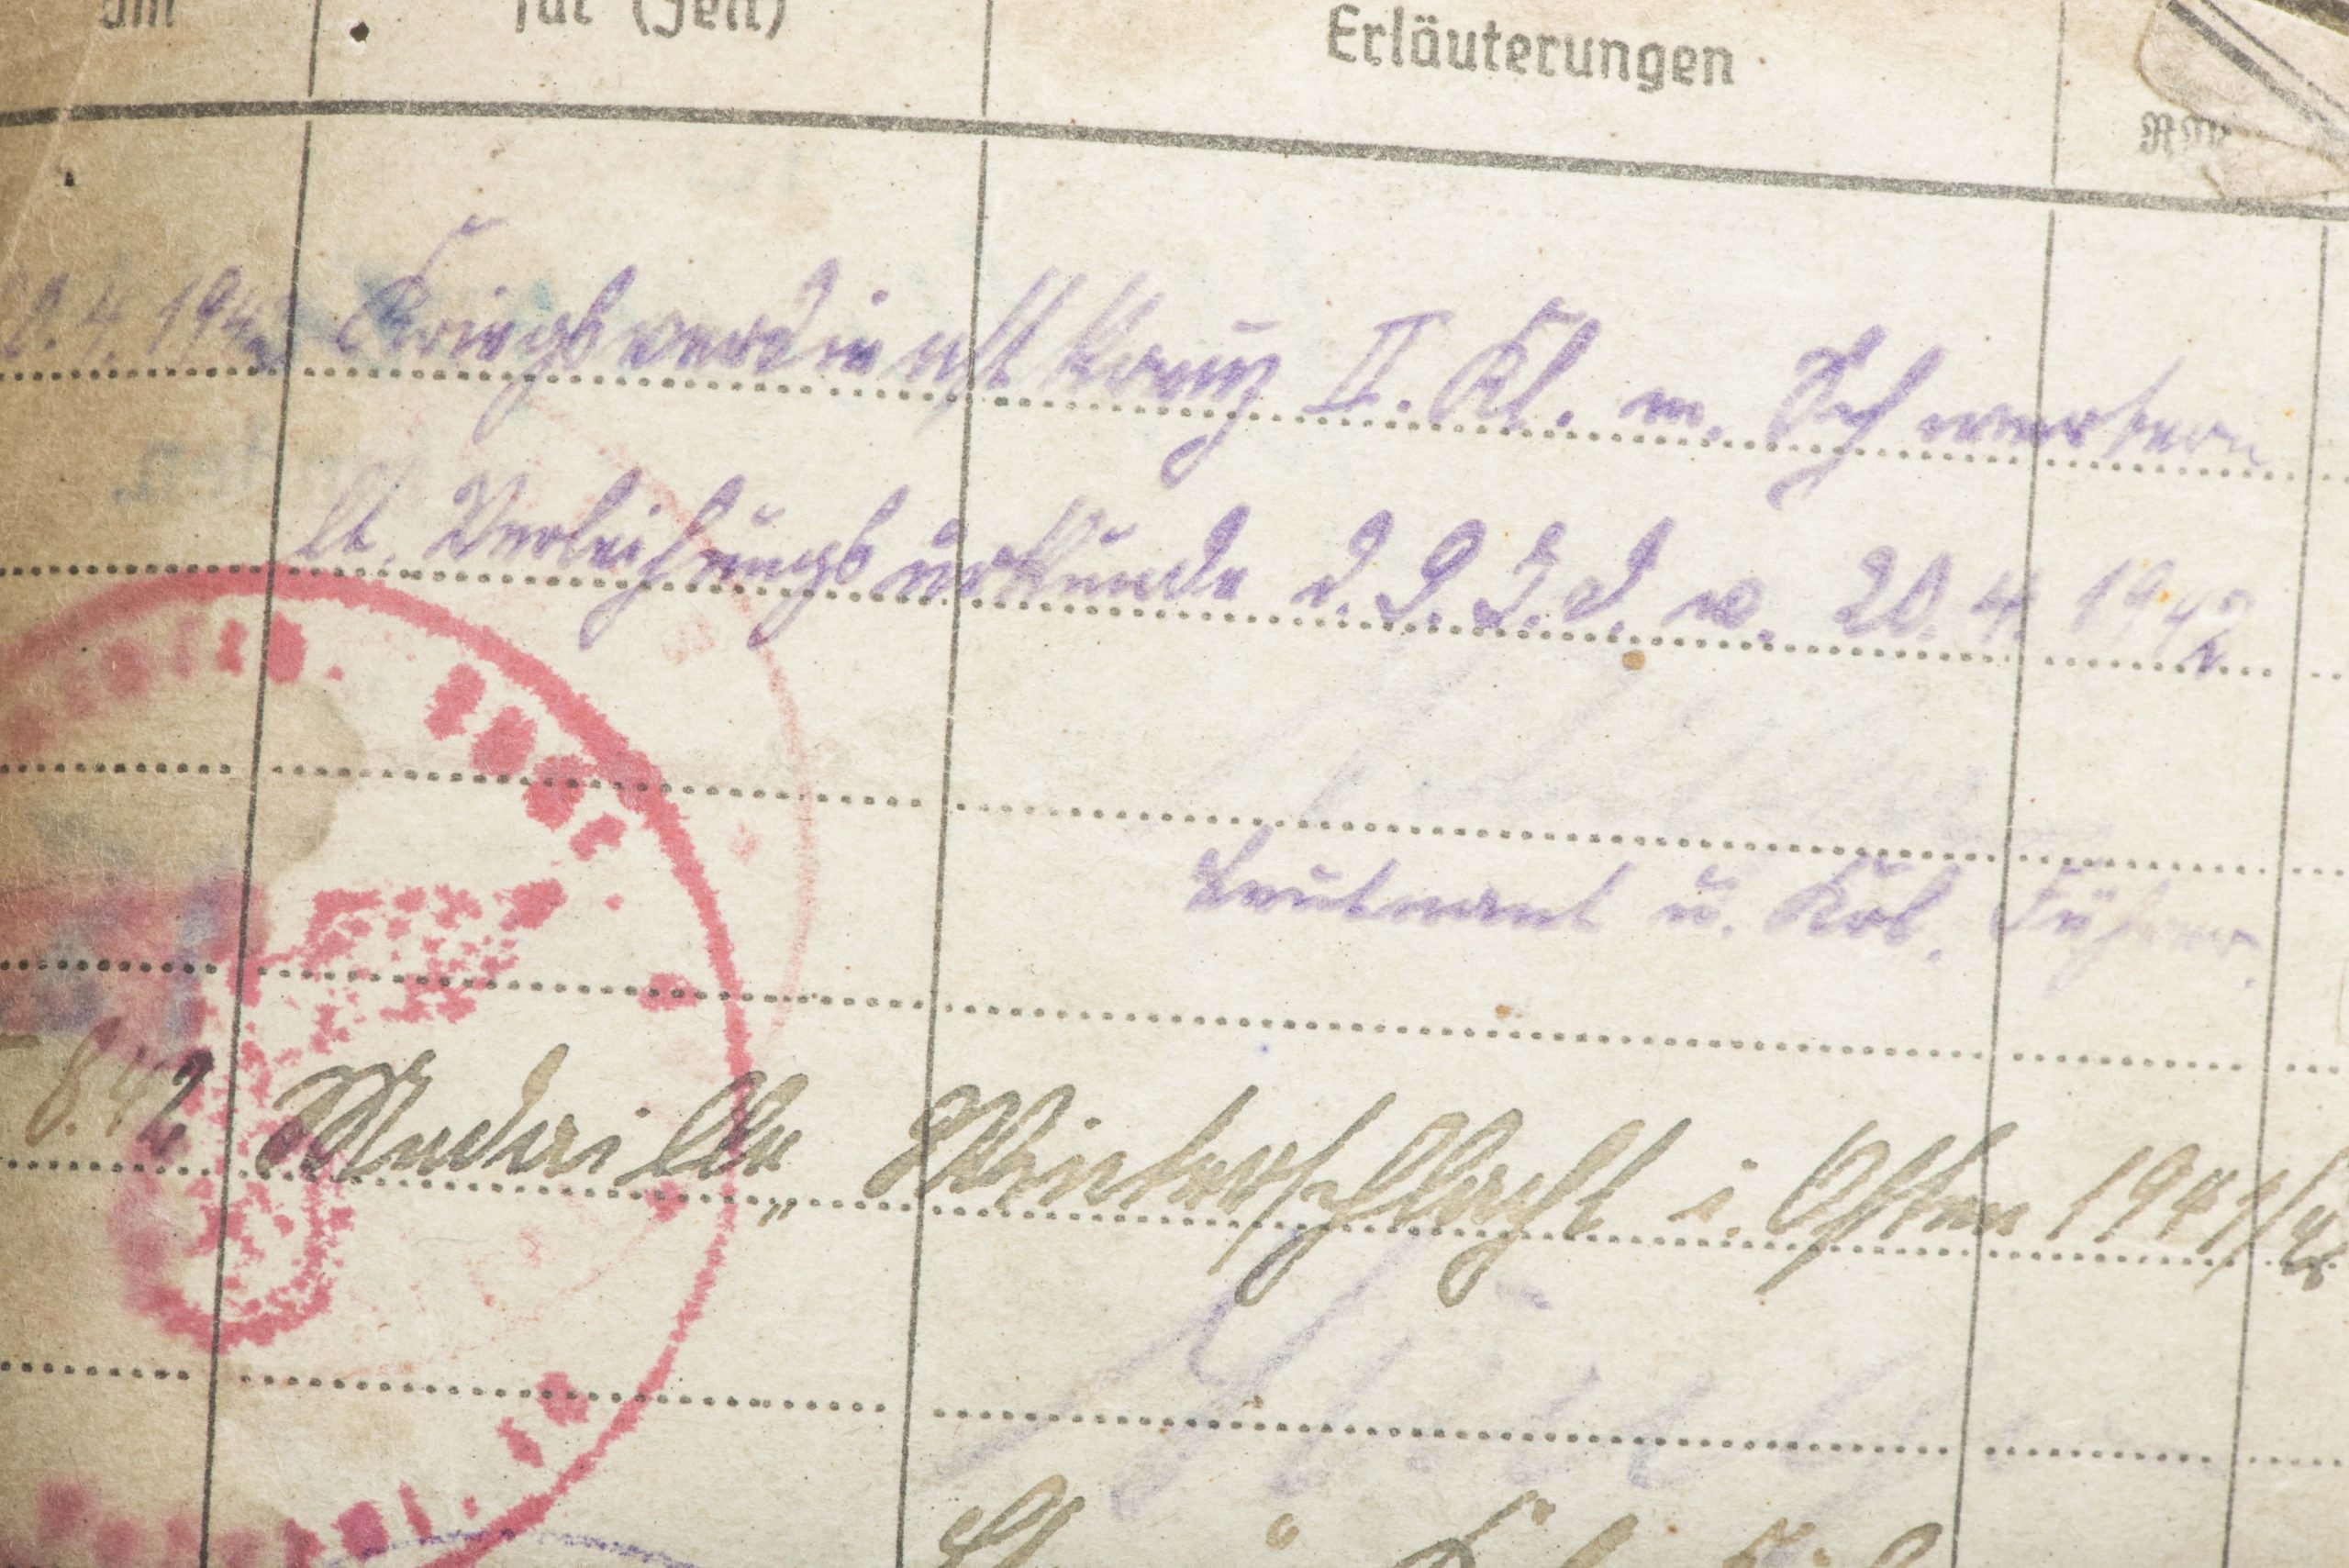 am für (Zeit) Erläuterungen
RM
20.4.1942 Kriegsverdienstkreuz II. Kl. m. Schwertern
lt. Verleihungsurkunde d. 9. I. D. v. 20.4.1942
Leutnant u. Kol. Führer.
8.42 Medaille „Winterschlacht i. Osten 1941/42